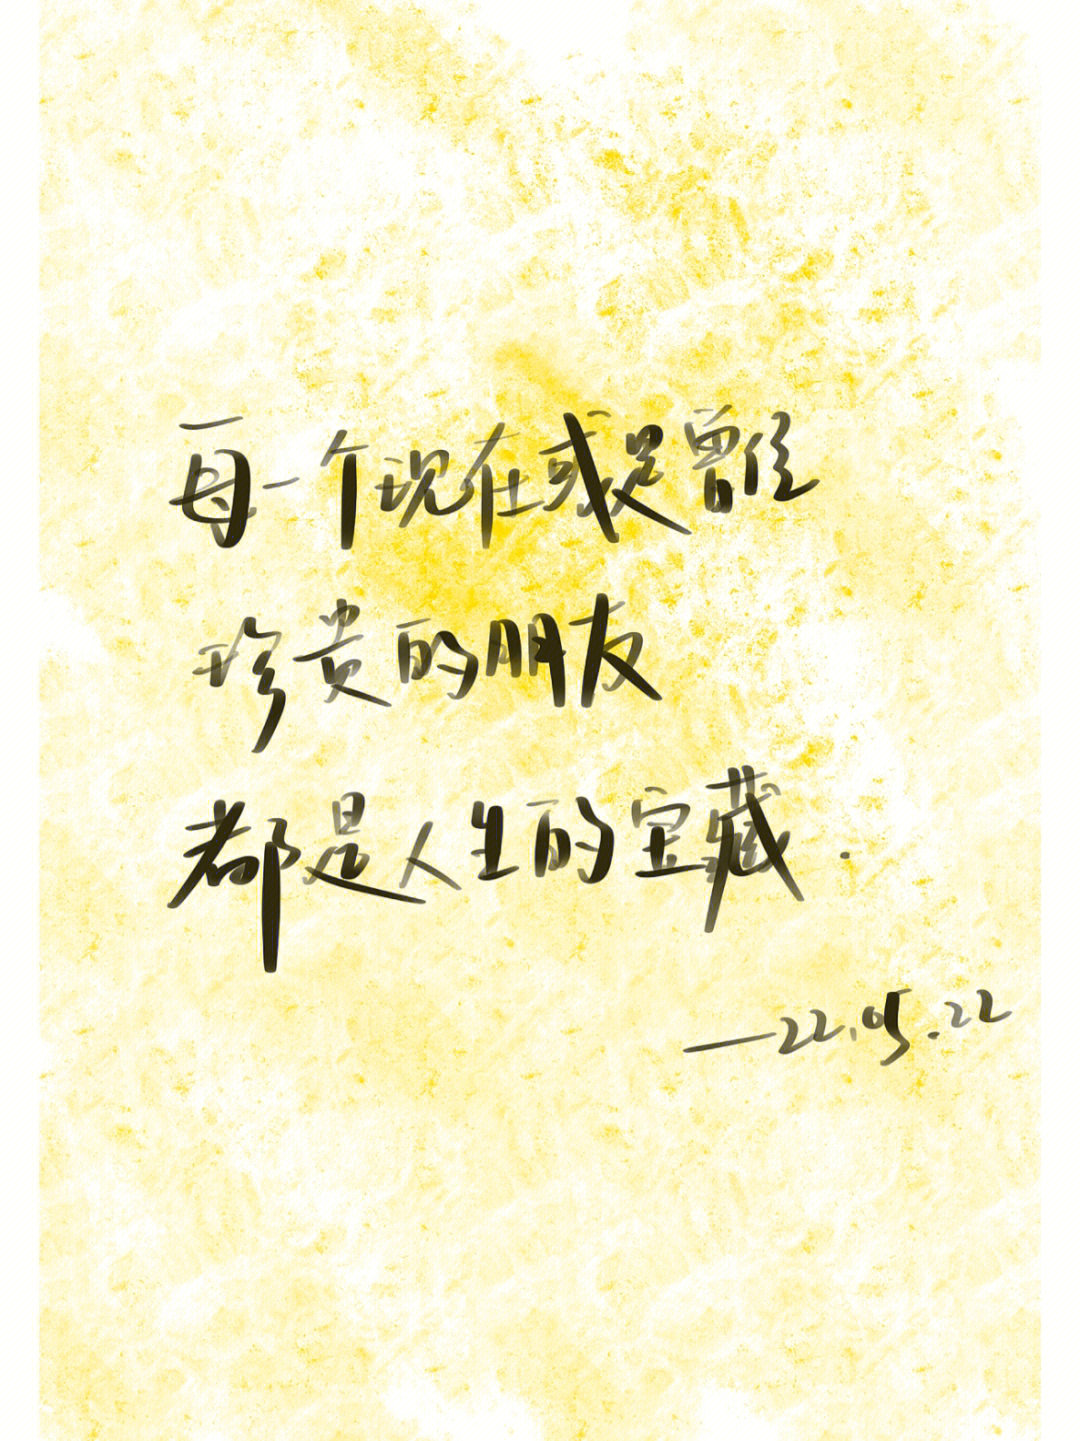 每一个现在或是曾经
珍贵的朋友
都是人生的宝藏.
—22.05.22